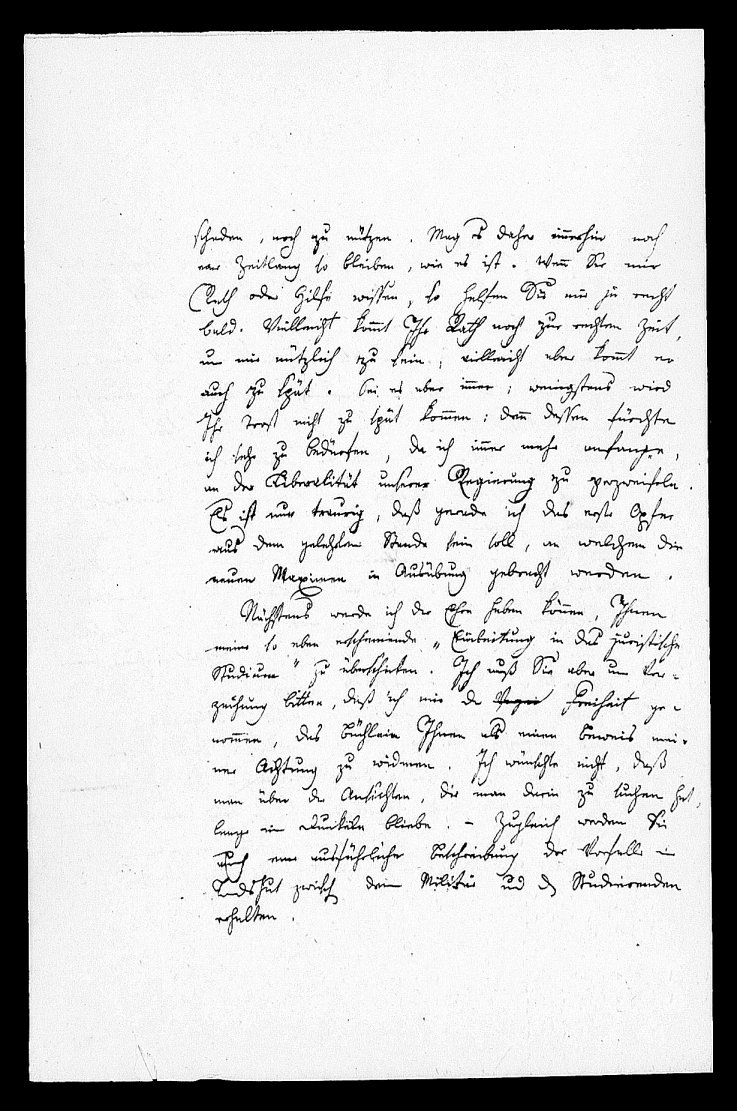 schaden, noch zu nützen. Mag es daher immerhin noch
eine Zeitlang so bleiben, wie es ist. Wenn Sie mir
Rath oder Hilfe wissen, so helfen Sie mir ja recht
bald. Vielleicht kommt Ihr Rath noch zur rechten Zeit,
um mir nützlich zu sein; vielleicht aber kommt er
auch zu spät. Sei es aber immer; wenigstens wird
Ihr Trost nicht zu spät kommen; denn dessen fürchte
ich sehr zu bedürfen, da ich immer mehr anfange,
an der Liberalität unserer Regierung zu verzweifeln.
Es ist nur traurig, daß gerade ich das erste Opfer
aus dem gelehrten Stande sein soll, an welchem die
neuen Maximen in Ausübung gebracht werden.
Nächstens werde ich die Ehre haben können, Ihnen
meine so eben erscheinende „Einleitung in das juristische
Studium“ zu überschicken. Ich muß Sie aber um Ver-
zeihung bitten, daß ich mir die Freiheit ge-
nommen, das Büchlein Ihnen als einen Beweis mei-
ner Achtung zu widmen. Ich wünschte nicht, daß
man über die Ansichten, die man darin zu suchen hat,
lange im Dunkeln bliebe. – Zugleich werden Sie
auch eine ausführliche Beschreibung der Vorfälle in
Landshut zwisch dem Militär und d Studierenden
erhalten.